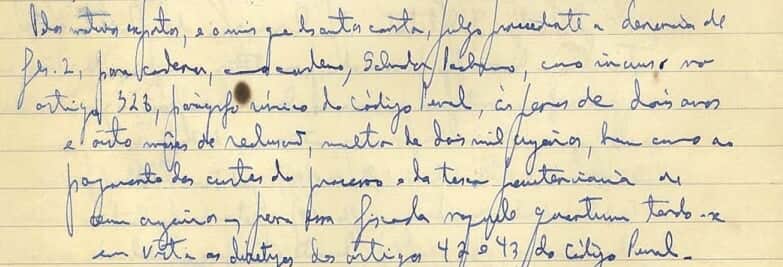 Pelos motivos expostos, e o mais que dos autos consta, julgo procedente a denuncia de
fls. 2, para condenar, como condeno, Salvador, como incurso no
artigo 328, parágrafo único do Código Penal, às penas de dois anos
e oito mêses de reclusão, multa de dois mil cruzeiros, bem como ao
pagamento das custas do processo e da taxa penitenciaria de
cem cruzeiros, pena essa fixada naquele quantum tendo-se
em vista as diretrizes dos artigos 42 e 43 do Código Penal.